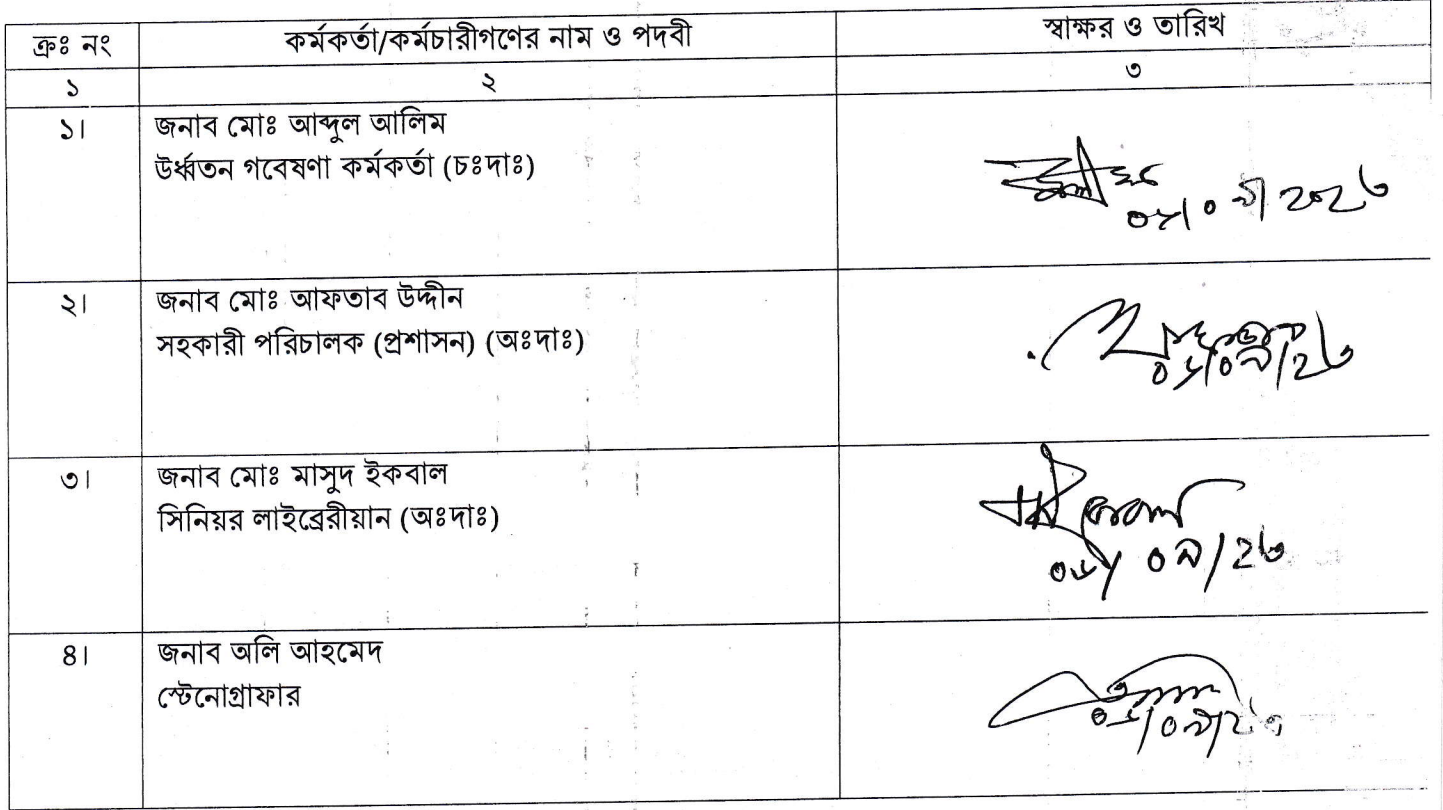 ক্রঃ নং কর্মকর্তা/কর্মচারীগণের নাম ও পদবী স্বাক্ষর ও তারিখ
১ ২ ৩
১। জনাব মোঃ আব্দুল আলিম
উর্ধ্বতন গবেষণা কর্মকর্তা (চঃদাঃ)
২। জনাব মোঃ আফতাব উদ্দীন
সহকারী পরিচালক (প্রশাসন) (অঃদাঃ)
৩। জনাব মোঃ মাসুদ ইকবাল
সিনিয়র লাইব্রেরীয়ান (অঃদাঃ)
৪। জনাব অলি আহমেদ
স্টেনোগ্রাফার